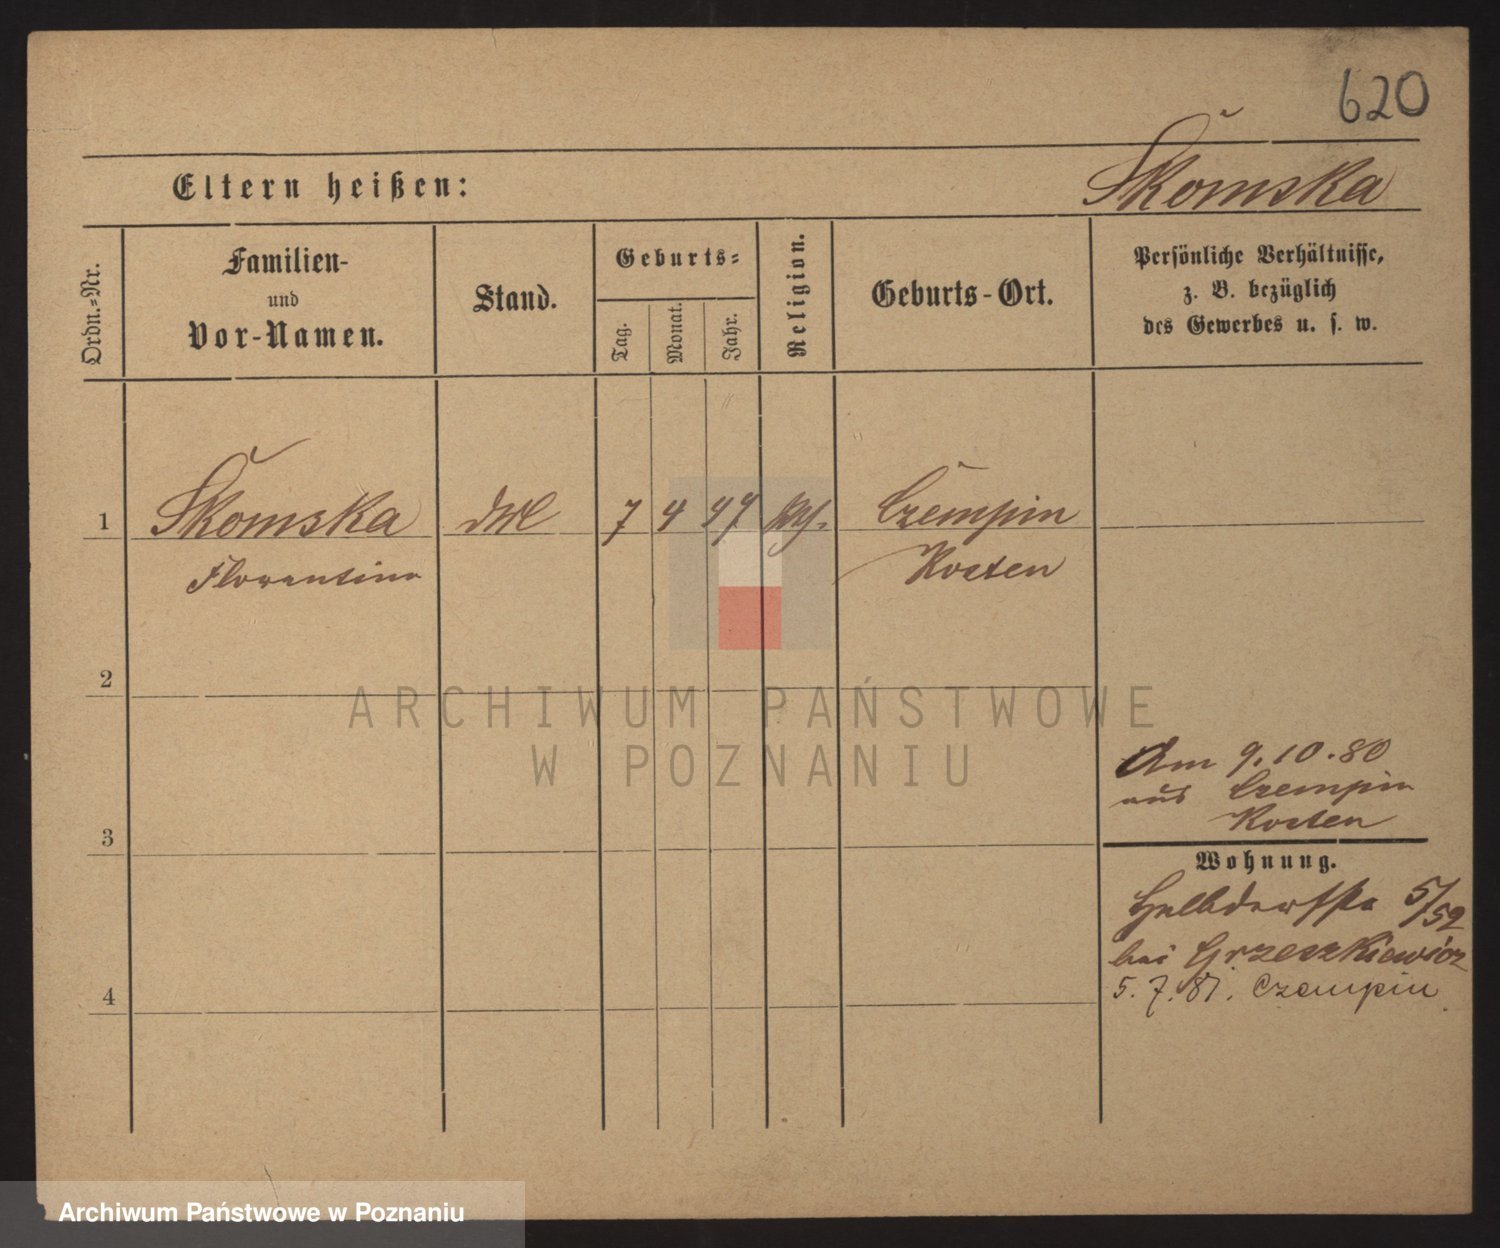 620
Eltern heißen:
Skomska
Ordn.=Nr.
Familien-
und
Vor-Namen.
Stand.
Geburts=
Tag.
Monat.
Jahr.
Religion.
Geburts-Ort.
Persönliche Verhältnisse,
z. B. bezüglich
des Gewerbes u. s. w.
1
Skomska
7
4
47
Czempin
Florentine
Kosten
2
ARCHIWUM PAŃSTWOWE
W POZNANIU
Am 9.10.80
aus Czempin
Kosten
3
Wohnung.
5/52
bei Grzeszkiewicz
5.7.81. Czempin
4
Archiwum Państwowe w Poznaniu